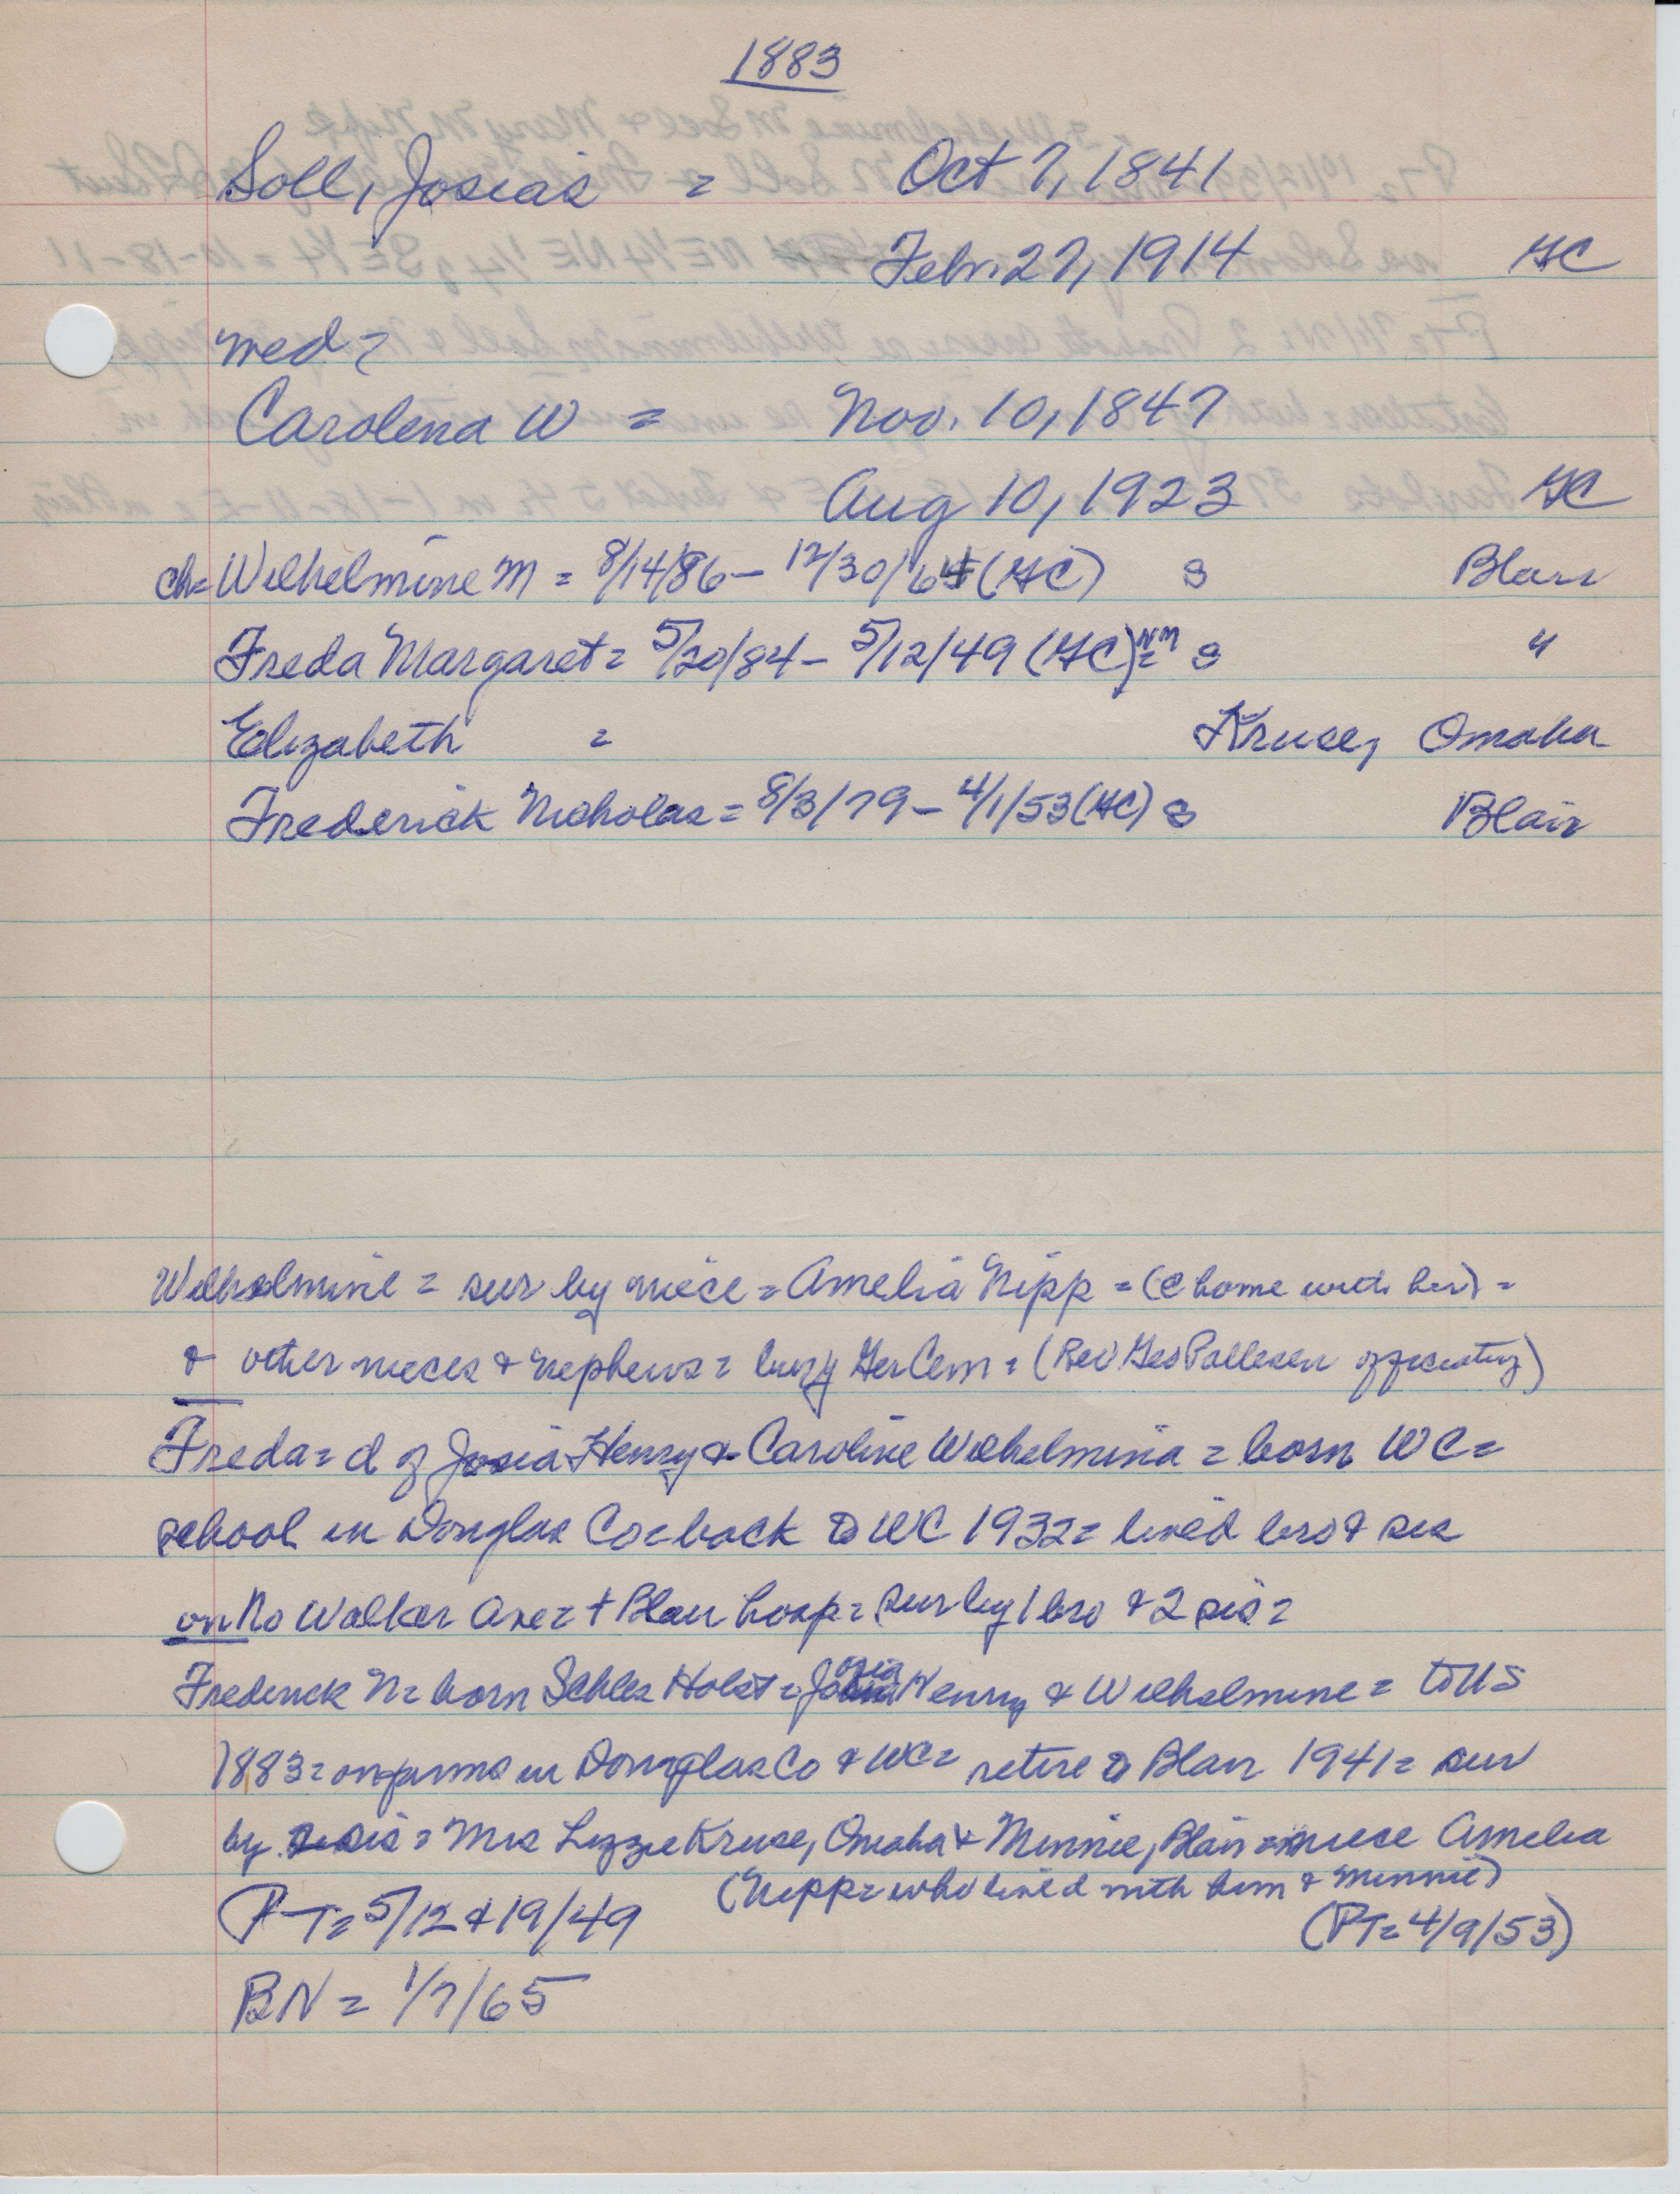 1883
Soll, Josias = Oct 7, 1841
Febr. 27, 1914 GC
med =
Carolena W = Nov. 10, 1847
Aug 10, 1923 GC
ch= Wilhelmine M = 8/14/86 – 12/30/64 (GC) S Blair
Freda Margaret = 5/20/84 – 5/12/49 (GC) = NM S "
Elizabeth = Kruse, Omaha
Frederick Nicholas = 8/3/79 – 4/1/53 (GC) S Blair
Wilhelmine = sur by niece = Amelia Nipp = (@ home with her) =
& other nieces & nephews = bury Ger Cem = (Rev Geo Pallesen officiating)
Freda = d of Josia Henry & Caroline Wilhelmina = born WC =
school in Douglas Co = back to WC 1932 = lived bro & sis
on No Walker Ave = + Blair hosp = sur by 1 bro & 2 sis =
Frederick N = born Schles Holst = Josia Henry & Wilhelmine = to US
1883 = on farms in Douglas Co & WC = retire to Blair 1941 = sur
by sis = Mrs Lizzie Kruse, Omaha & Minnie, Blair = niece Amelia
(Nipp = who lived with him & Minnie)
PT = 5/12 & 19/49 (PT = 4/9/53)
BN = 1/7/65